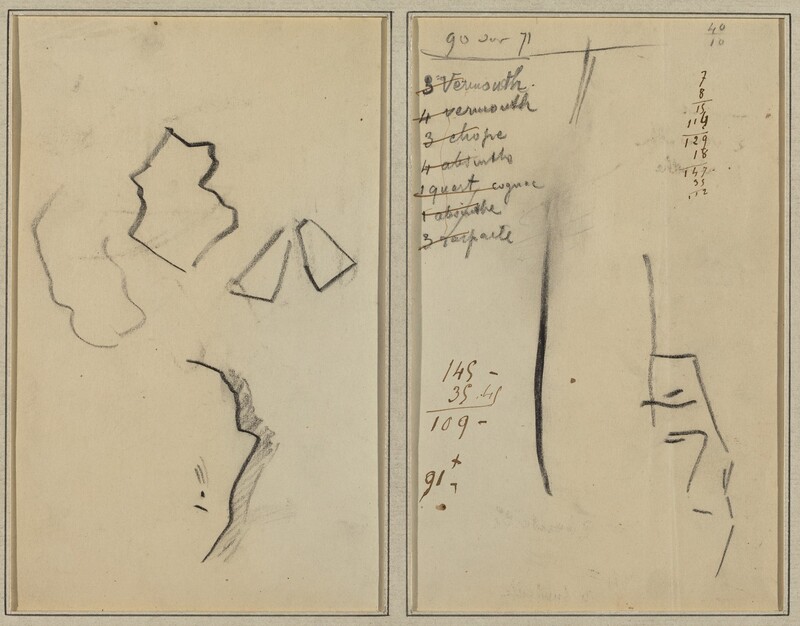 90 sur 71
40
10
3 Vermouth.
4 vermouth
3 chope
4 absinthe
1 quart cognac
1 absinthe
3
7
8
15
114
129
18
147
35
145 -
35.45
109 -
91